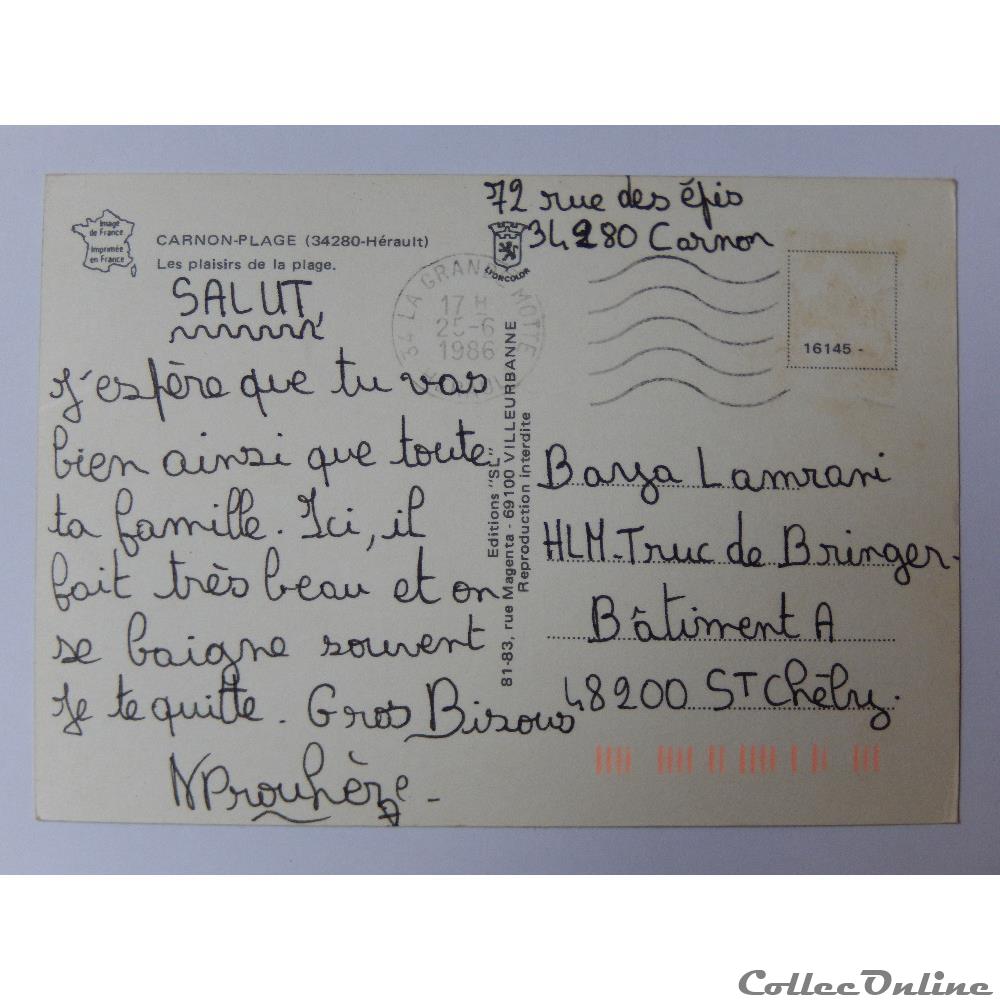 72 rue des épis
34280 Carnon
Image
de France
Imprimée
en France
CARNON-PLAGE (34280-Hérault)
Les plaisirs de la plage.
LYORCOLOR
34 LA GRANDE MOTTE
17 H
25-6
1986
16145 -
SALUT,
J'espère que tu vas
bien ainsi que toute
ta famille. Ici, il
fait très beau et on
se baigne souvent
Je te quitte. Gros Bisous
N Prouhèze -
Editions "SL"
81-83, rue Magenta - 69100 VILLEURBANNE
Reproduction interdite
Baya Lamrani
HLM-Truc de Bringer-
Bâtiment A
48200 ST Chély.
CollecOnline